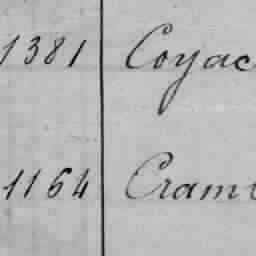 1381 Coyac
1164 Cram